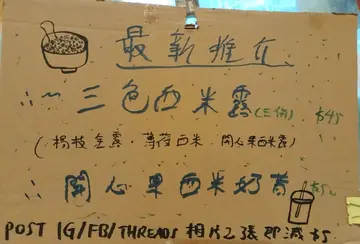 最新推介
三色西米露(三份) $45
(楊枝金露·薄荷西米·開心果西米露)
開心果西米奶昔
POST IG/FB/THREADS 相片2張即減$5